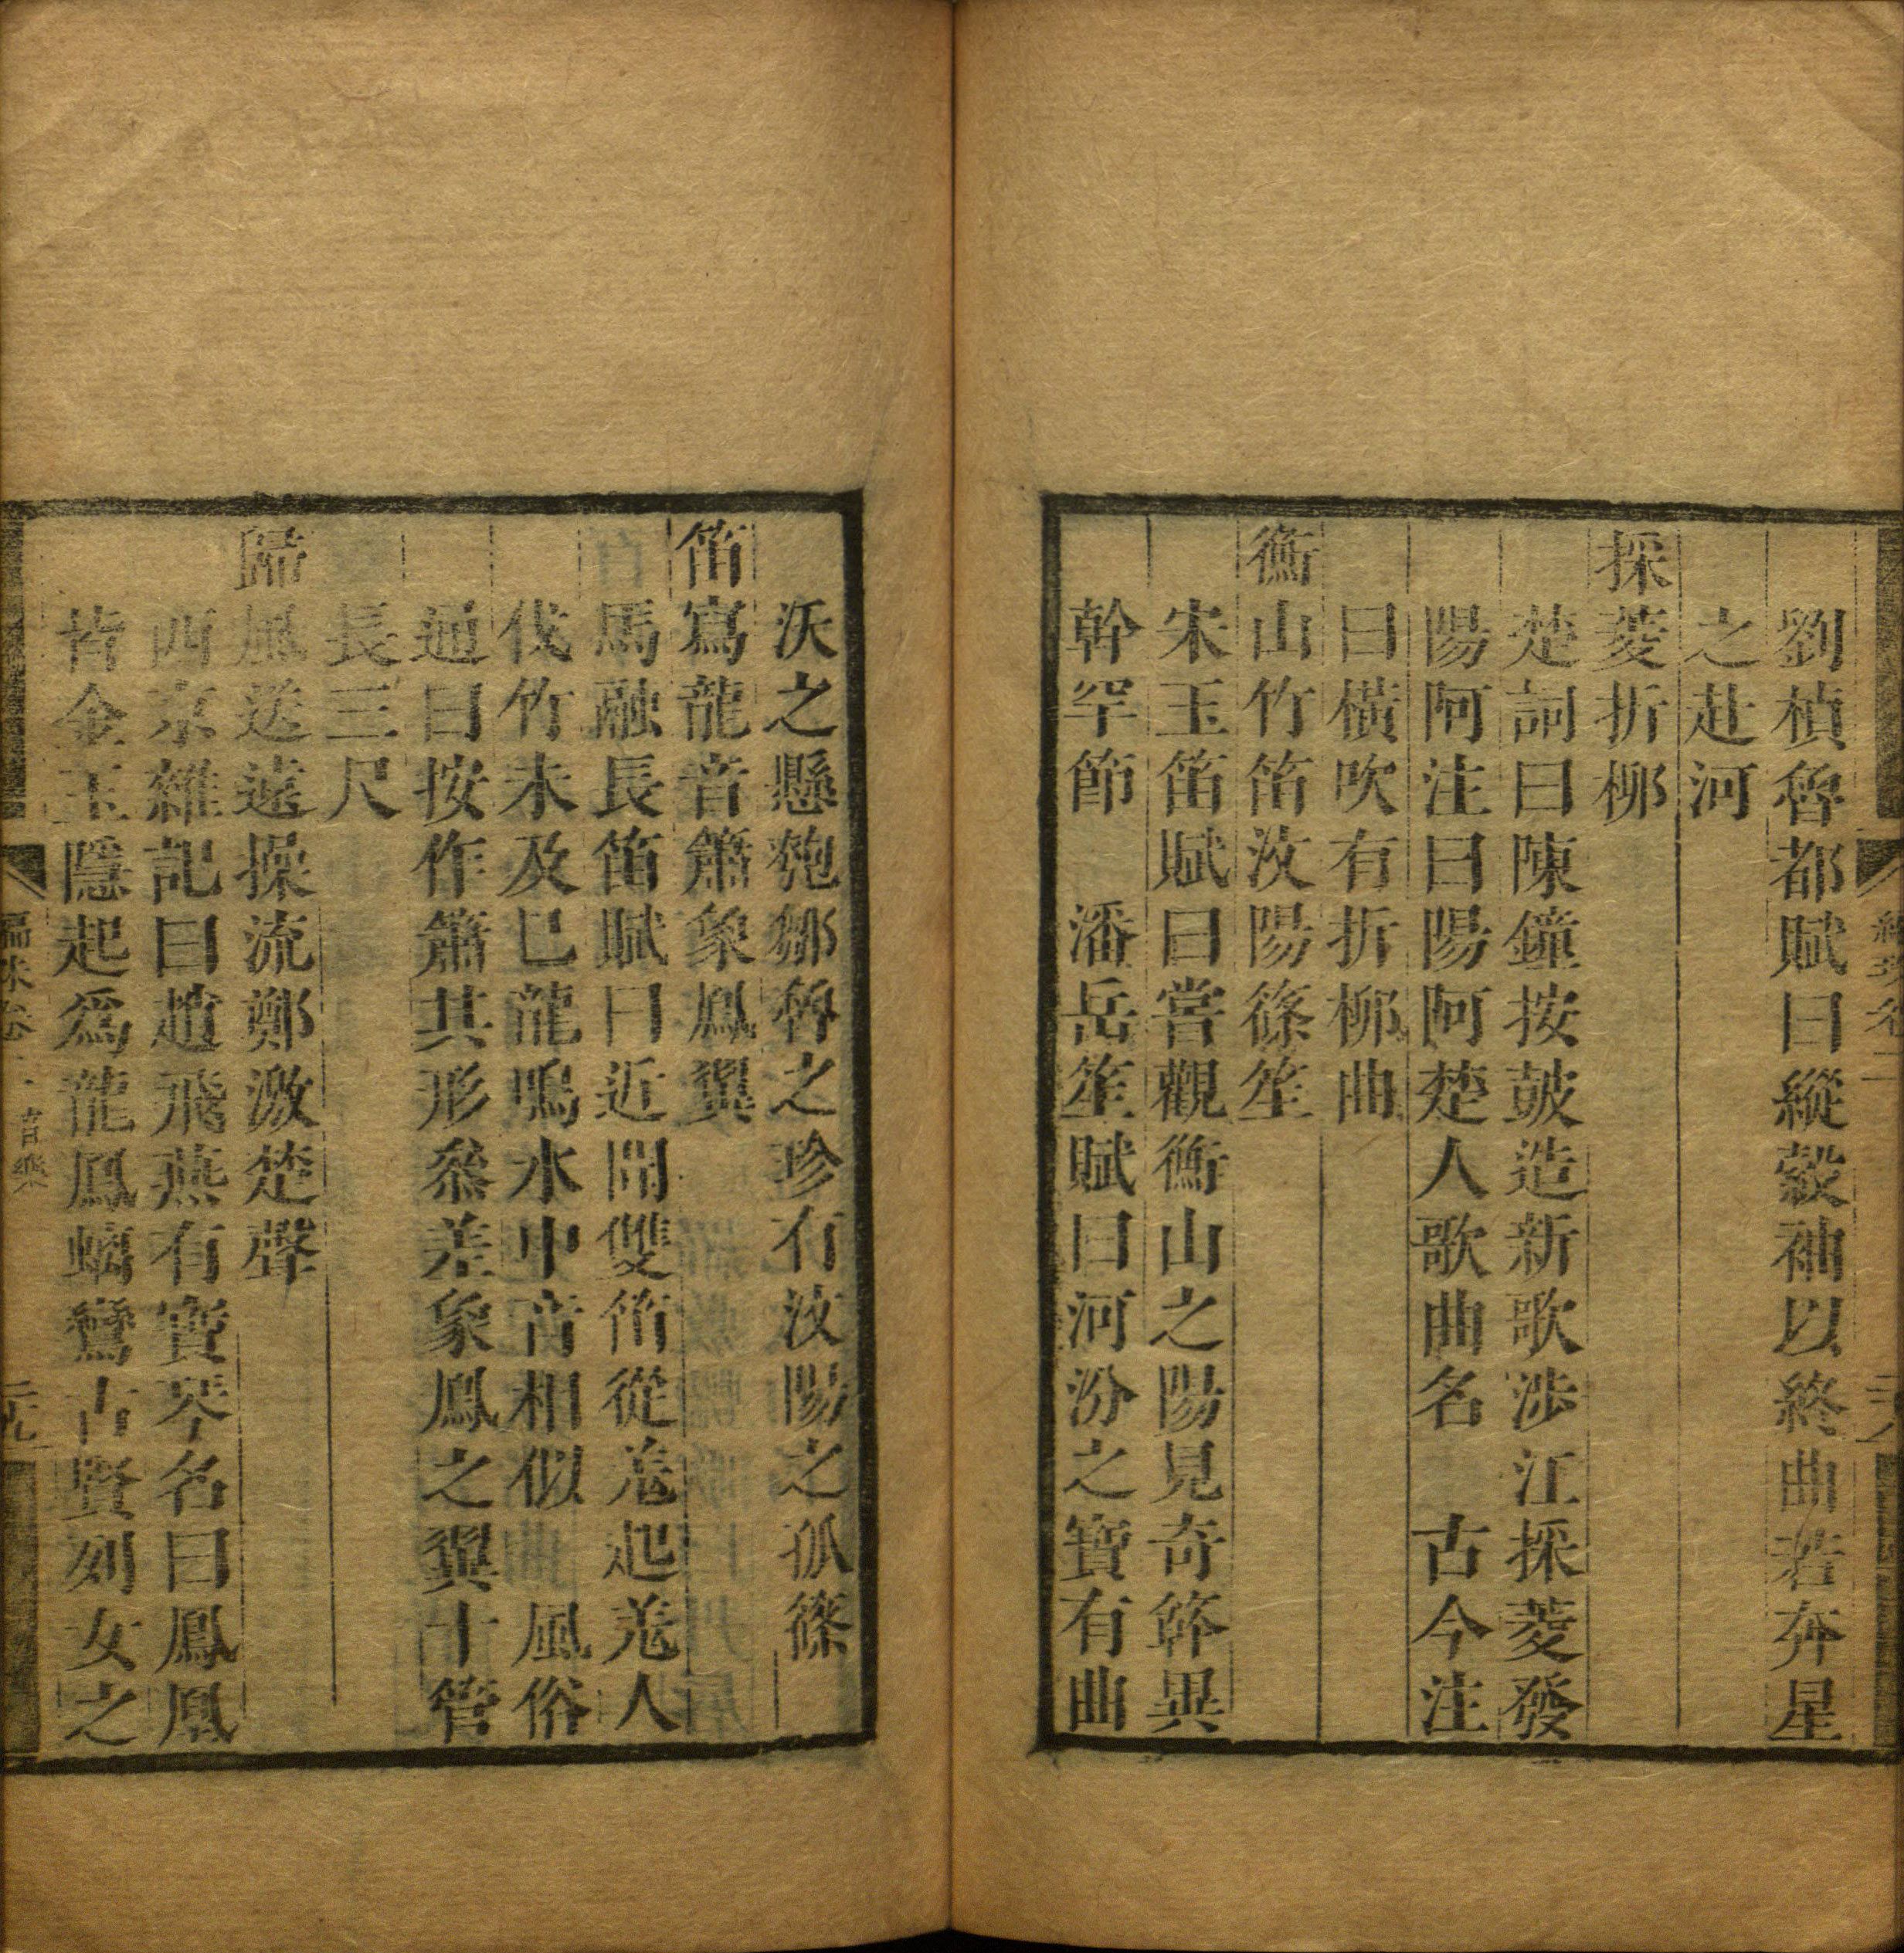 劉楨魯都賦曰縱縠袖以終曲若奔星
之赴河
採菱折柳
楚詞曰陳鐘按鼓造新歌涉江採菱發
陽阿注曰陽阿楚人歌曲名　古今注
曰橫吹有折柳曲
衡山竹笛汶陽篠笙
宋玉笛賦曰嘗觀衡山之陽見奇篠異
幹罕節　潘岳笙賦曰河汾之寶有曲
沃之懸匏鄒魯之珍有汶陽之孤篠
笛寫龍音簫象鳳翼
馬融長笛賦曰近間雙笛從羗起羗人
伐竹未及已龍鳴水中宵相似　風俗
通曰按作簫其形叅差象鳳之翼十管
長三尺
歸風送遠操流鄭激楚聲
西京雜記曰趙飛燕有寶琴名曰鳳凰
皆金玉隱起爲龍鳳螭鸞古賢列女之
編珠卷二
音樂
二十九